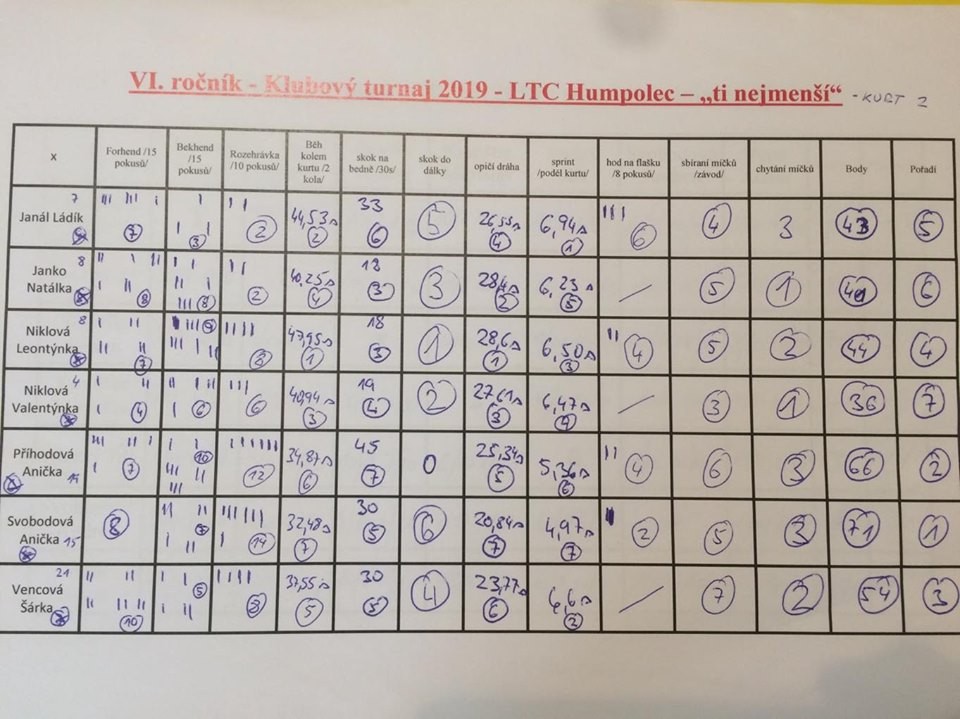 VI. ročník - Klubový turnaj 2019 - LTC Humpolec – „ti nejmenší“ - KURT 2
x Forhend /15 pokusů/ Bekhend /15 pokusů/ Rozehrávka /10 pokusů/ Běh kolem kurtu /2 kola/ skok na bedně /30s/ skok do dálky opičí dráha sprint /podél kurtu/ hod na flašku /8 pokusů/ sbíraní míčků /závod/ chytání míčků Body Pořadí
7
Janál Ládík 7 3 2 44,53s 2 33 6 5 26,55s 4 6,94s 1 6 4 3 43 5
8
Janko Natálka 8 8 2 40,25s 4 18 3 3 2 6,23s 5 / 5 1 6
8
Niklová Leontýnka 7 8 47,95s 1 18 3 1 28,6s 1 6,50s 3 4 5 2 44 4
4
Niklová Valentýnka 4 6 6 40,94s 3 19 4 2 27,61s 3 6,47s 4 / 3 1 36 7
Příhodová Anička 14 7 10 12 34,87s 6 45 7 0 25,34s 5 5,36s 6 4 6 3 66 2
Svobodová Anička 15 8 14 32,48s 7 30 5 6 20,84s 7 4,97s 7 2 5 3 71 1
21
Vencová Šárka 10 5 8 37,55s 5 30 5 4 23,77s 6 6,6s 2 / 7 2 54 3